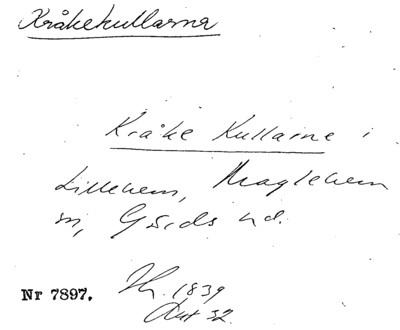 Kråkekullarna
Kråke Kullarne i
Lillehem, Maglehem
sn, Gärds hd.
Nr 7897.
1839
Akt 32.